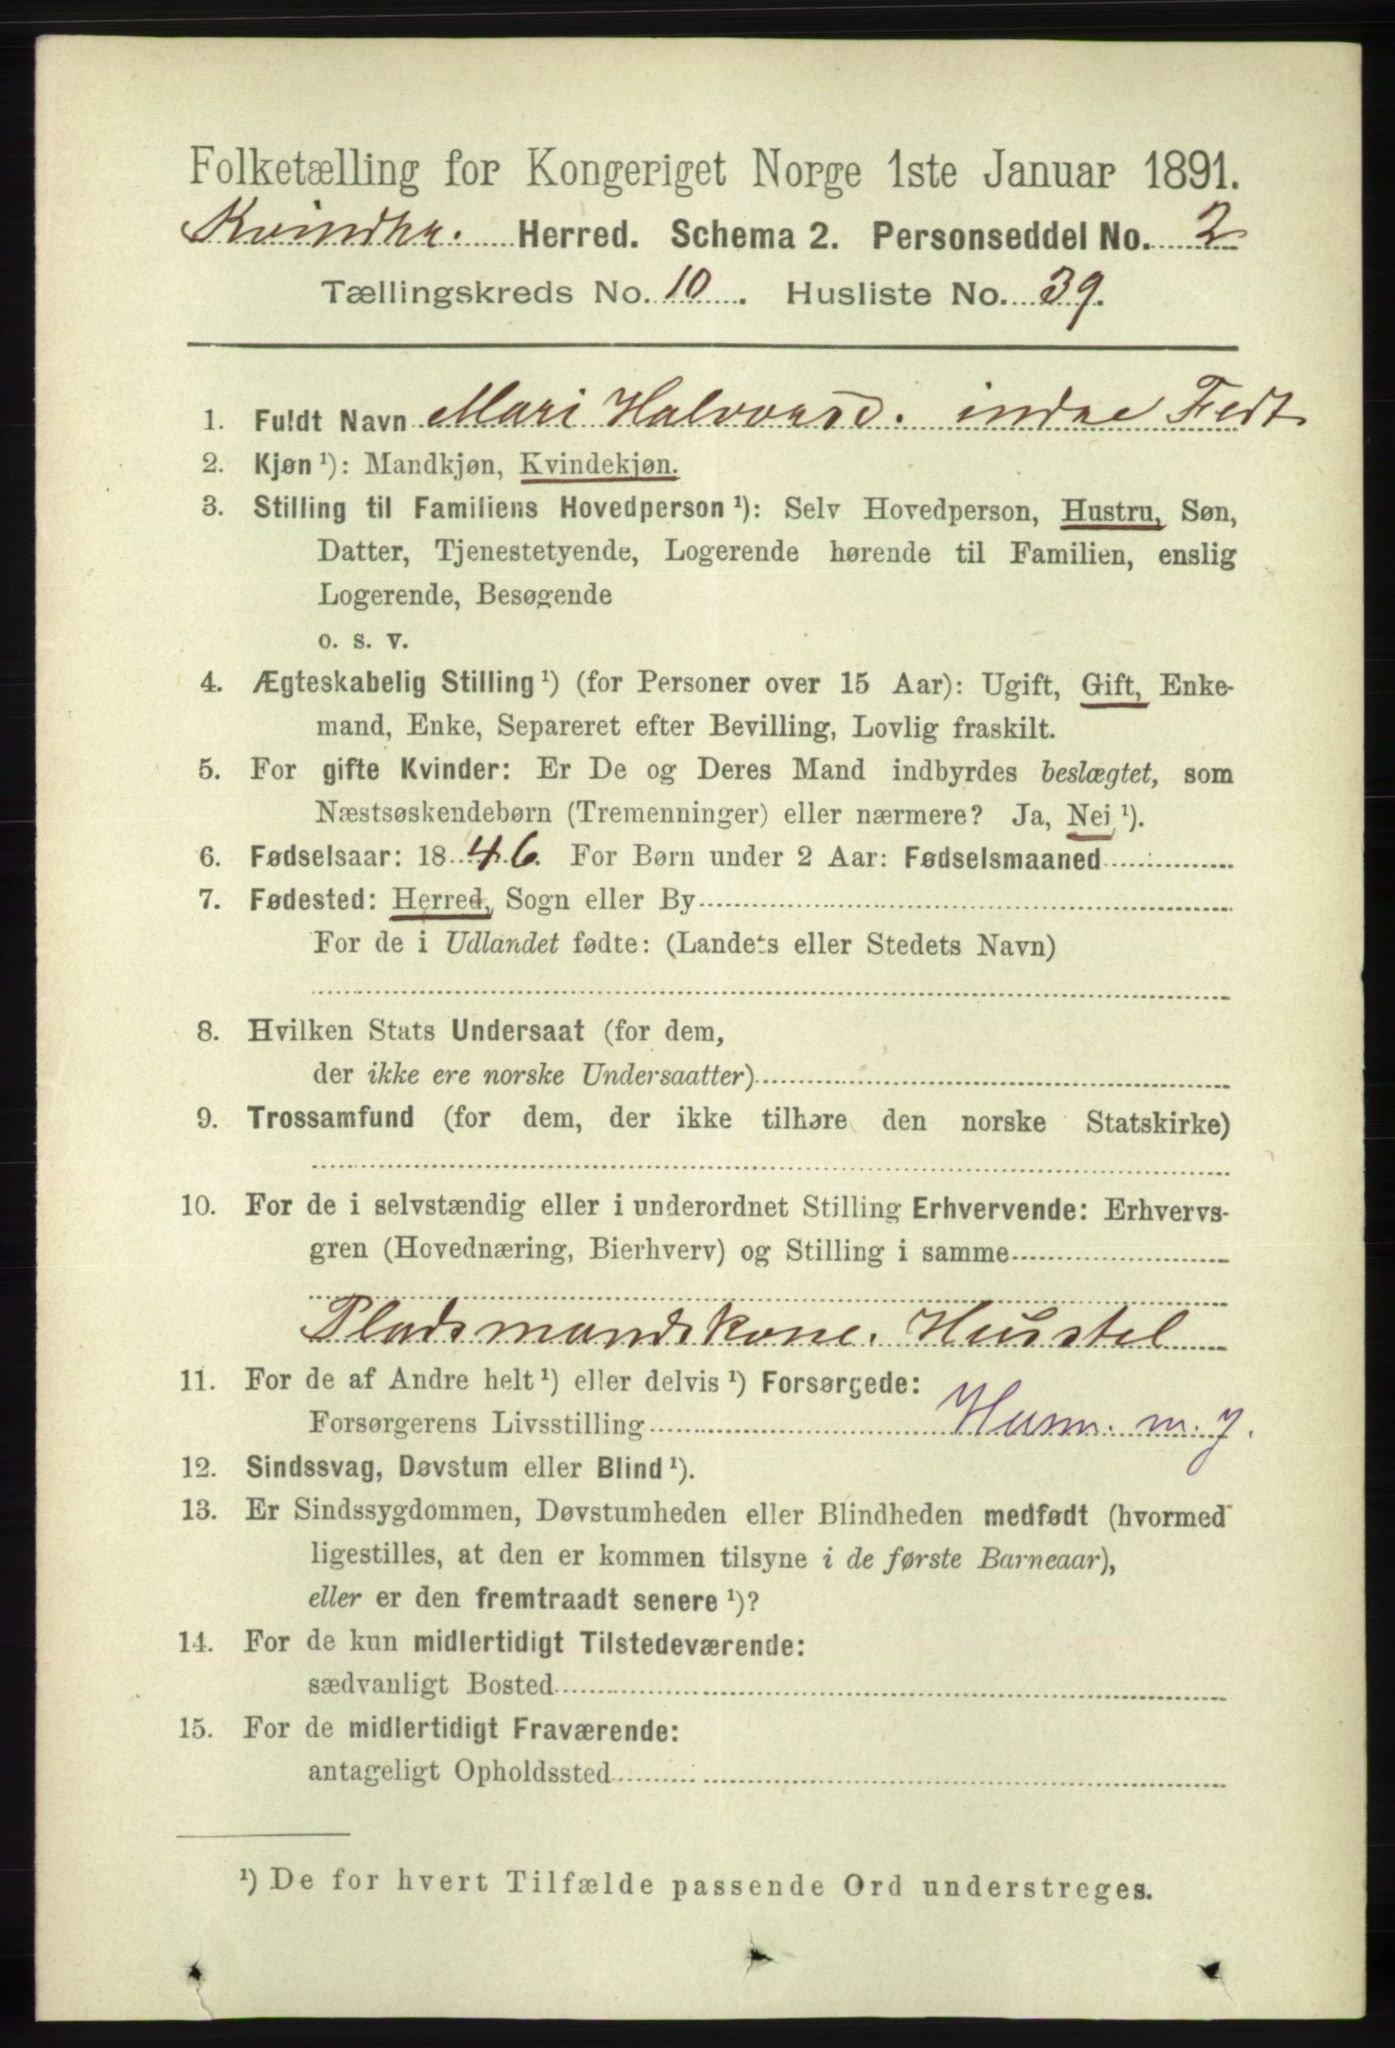 Folketælling for Kongeriget Norge 1ste Januar 1891.
Kvindhr. Herred. Schema 2. Personseddel No. 2
Tællingskreds No. 10. Husliste No. 39.
1. Fuldt Navn Mari Halvorsd. indre Fedt
2. Kjøn ¹): Mandkjøn, Kvindekjøn.
3. Stilling til Familiens Hovedperson ¹): Selv Hovedperson, Hustru, Søn,
Datter, Tjenestetyende, Logerende hørende til Familien, enslig
Logerende, Besøgende
o. s. v.
4. Ægteskabelig Stilling ¹) (for Personer over 15 Aar): Ugift, Gift, Enke-
mand, Enke, Separeret efter Bevilling, Lovlig fraskilt.
5. For gifte Kvinder: Er De og Deres Mand indbyrdes beslægtet, som
Næstsøskendebørn (Tremenninger) eller nærmere? Ja, Nei ¹).
6. Fødselsaar: 1846. For Børn under 2 Aar: Fødselsmaaned
7. Fødested: Herred, Sogn eller By
For de i Udlandet fødte: (Landets eller Stedets Navn)
8. Hvilken Stats Undersaat (for dem,
der ikke ere norske Undersaatter)
9. Trossamfund (for dem, der ikke tilhøre den norske Statskirke)
10. For de i selvstændig eller i underordnet Stilling Erhvervende: Erhvervs-
gren (Hovednæring, Bierhverv) og Stilling i samme
Pladsmandskone. Husstel
11. For de af Andre helt ¹) eller delvis ¹) Forsørgede:
Forsørgerens Livsstilling Husm. m. j.
12. Sindssvag, Døvstum eller Blind ¹).
13. Er Sindssygdommen, Døvstumheden eller Blindheden medfødt (hvormed
ligestilles, at den er kommen tilsyne i de første Barneaar),
eller er den fremtraadt senere ¹)?
14. For de kun midlertidigt Tilstedeværende:
sædvanligt Bosted
15. For de midlertidigt Fraværende:
antageligt Opholdssted
¹) De for hvert Tilfælde passende Ord understreges.